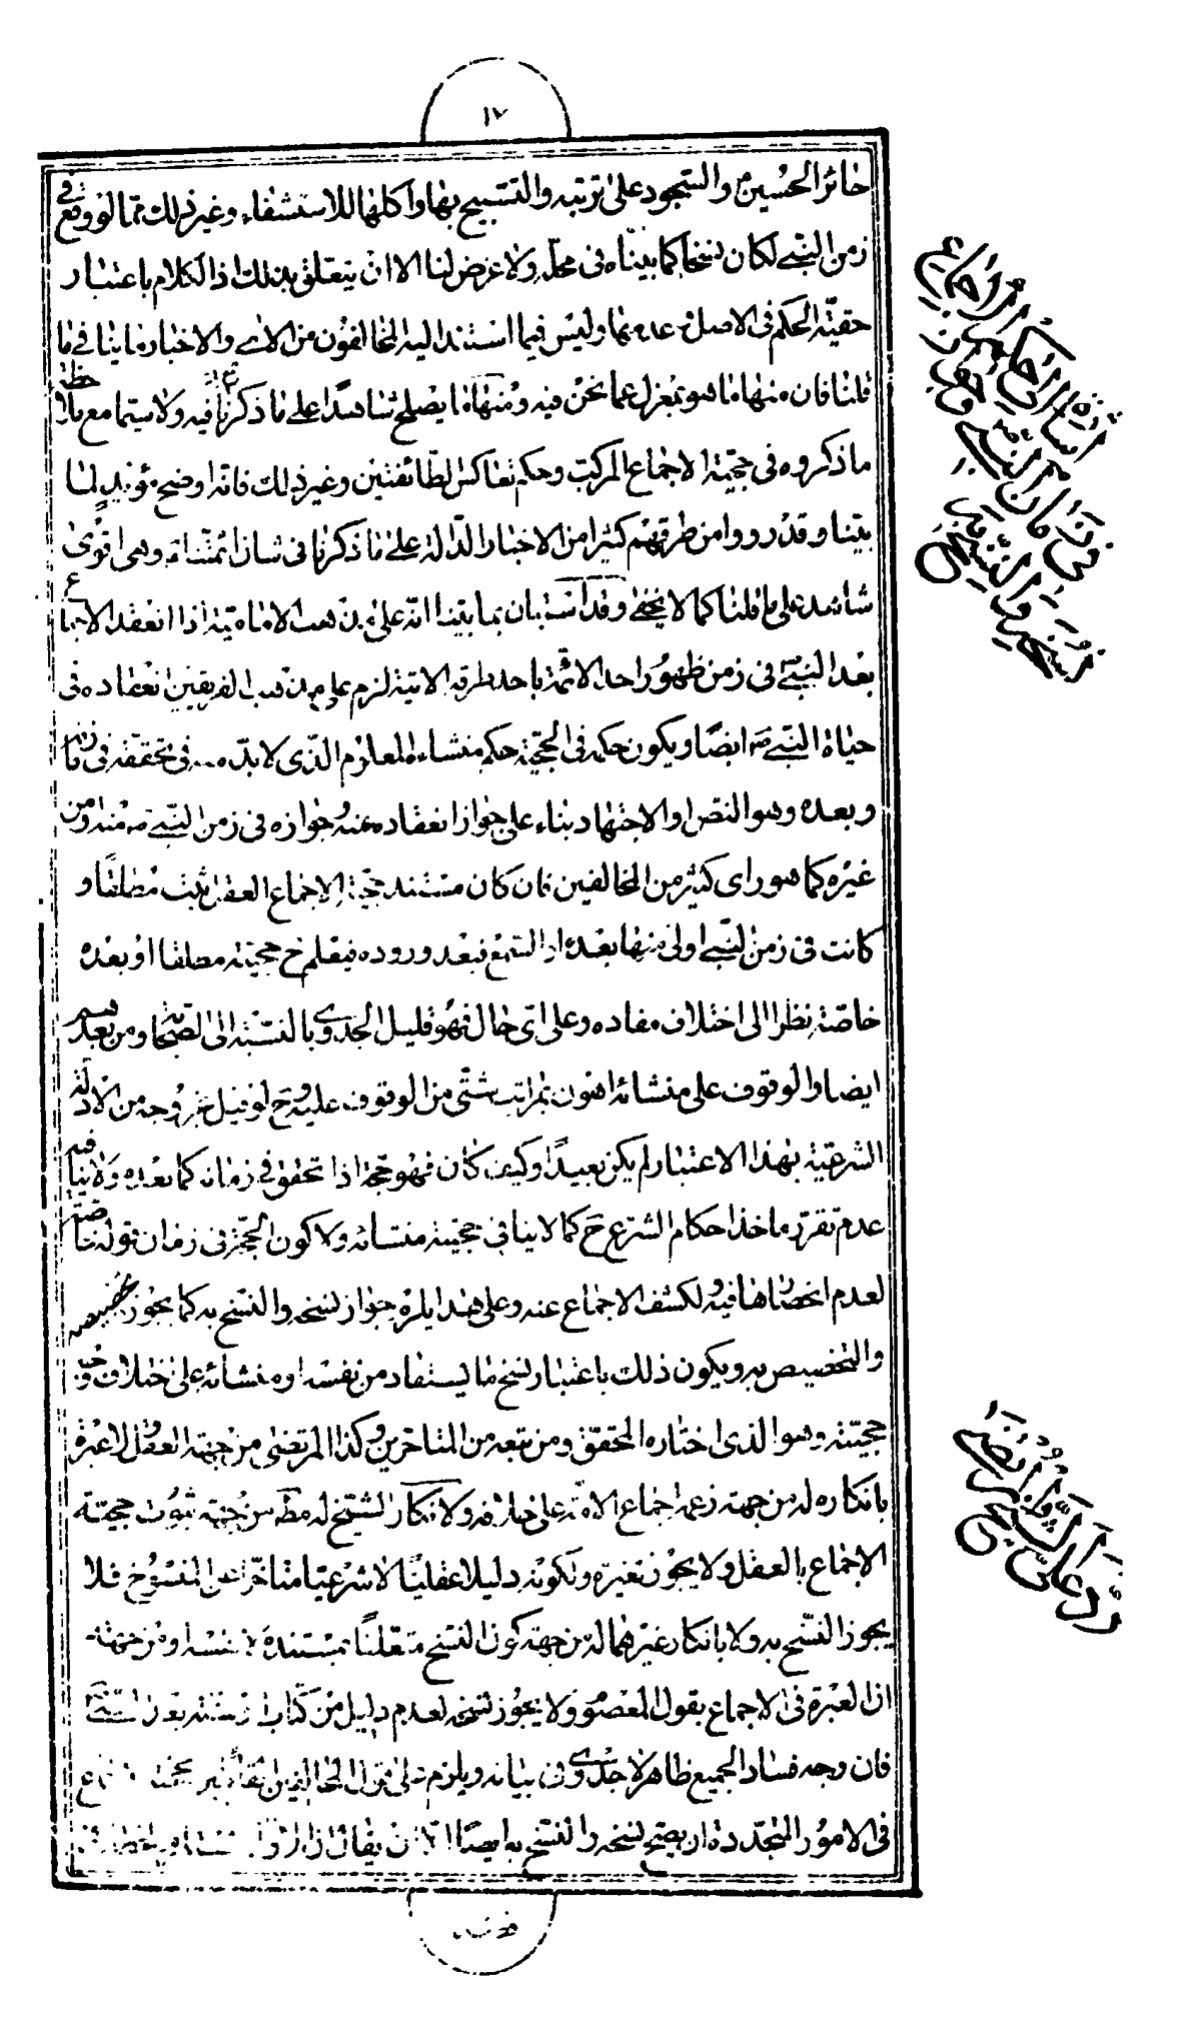 ١٧
حائر الحسين ع والسجود على تربته والتسبيح بها واكلها للاستشفاء وغير ذلك مما لو وقع في
زمن النبي لكان نسخا كما بيناه في محله ولا غرض لنا الان يتعلق بذلك اذ الكلام باعتبار
حقية الحكم في الاصل وعدمها وليس فيما استند اليه المخالفون من الاي والاخبار ما ينافي ما
قلنا فان منها ما هو بمعزل عما نحن فيه ومنها ما يصلح شاهدا على ما ذكرنا فيه ولا سيما مع ملاحظة
ما ذكروه في حجية الاجماع المركب وحكم تعاكس الطائفتين وغير ذلك فانه اوضح مؤيد لما
بينا وقد رووا من طرقهم كثيرا من الاخبار الدالة على ما ذكرنا في شان ائمتنا ع وهي اقوى
شاهد على ما قلنا كما لا يخفى وقد استبان بما بينا انه على مذهب الامامية اذا انعقد الاجماع
بعد النبي في زمن ظهور احد الائمة باحد طرقه الاتية لزم على مذهب الفريقين انعقاده في
حياة النبي ص ايضا ويكون حكمه في الحجية حكم منشاءه المعلوم الذي لا بد ... في تحققه في زمانه
وبعده وهو النص او الاجتهاد بناء على جواز انعقاده عنه وجوازه في زمن النبي ص منه ومن
غيره كما هو راى كثير من المخالفين فان كان مستند حجية الاجماع العقل ثبت مطلقا و
كانت في زمن النبي اولى منها بعده او السمع فبعد وروده فيعلم ح حجيته مطلقا او بعده
خاصة نظرا الى اختلاف مفاده وعلى اى حال فهو قليل الجدوى بالنسبة الى الصحابة ومن بعدهم
ايضا والوقوف على منشائه اهون بمراتب شتى من الوقوف عليه وح لو قيل بخروجه من الادلة
الشرعية بهذا الاعتبار لم يكن بعيدا وكيف كان فهو حجة اذا تحقق في زمانه كما بعده ولا ينافيه
عدم تقرر ماخذ احكام الشرع ح كما لا ينافي حجية منشائه ولا كون الحجة في زمان قوله خاصة
لعدم انحصارها فيه ولكشف الاجماع عنه وعلى هذا يلزم جواز نسخه والنسخ به كما يجوز تخصيصه
والتخصيص به ويكون ذلك باعتبار نسخ ما يستفاد من نفسه او منشائه على اختلاف وجوه
حجيته وهو الذي اختاره المحقق ومن تبعه من المتاخرين وكذا المرتضى من جهة العقل لا عبرة
بانكاره له من جهة زعمه اجماع الامة على خلافه ولا بانكار الشيخ له مط من جهة ثبوت حجية
الاجماع بالعقل ولا يجوز تغيره ولكونه دليلا عقليا لا شرعيا متاخرا عن المنسوخ فلا
يجوز النسخ به ولا بانكار غيرهما له من جهة كون النسخ متعلقا بمستنده لا بنفسه او من جهة
ان العبرة في الاجماع بقول المعصوم ولا يجوز نسخه لعدم دليل من كتاب او سنة بعد النبي
فان وجه فساد الجميع ظاهر لا جدوى في بيانه ويلزم على قول المخالفين
في الامور المتجددة ان يصح نسخه والنسخ به ايضا الا ان يقال
اشارة الى حكم الاجماع
في زمان النبي ص وجواز
نسخه والنسخ به
رد على الشيخ